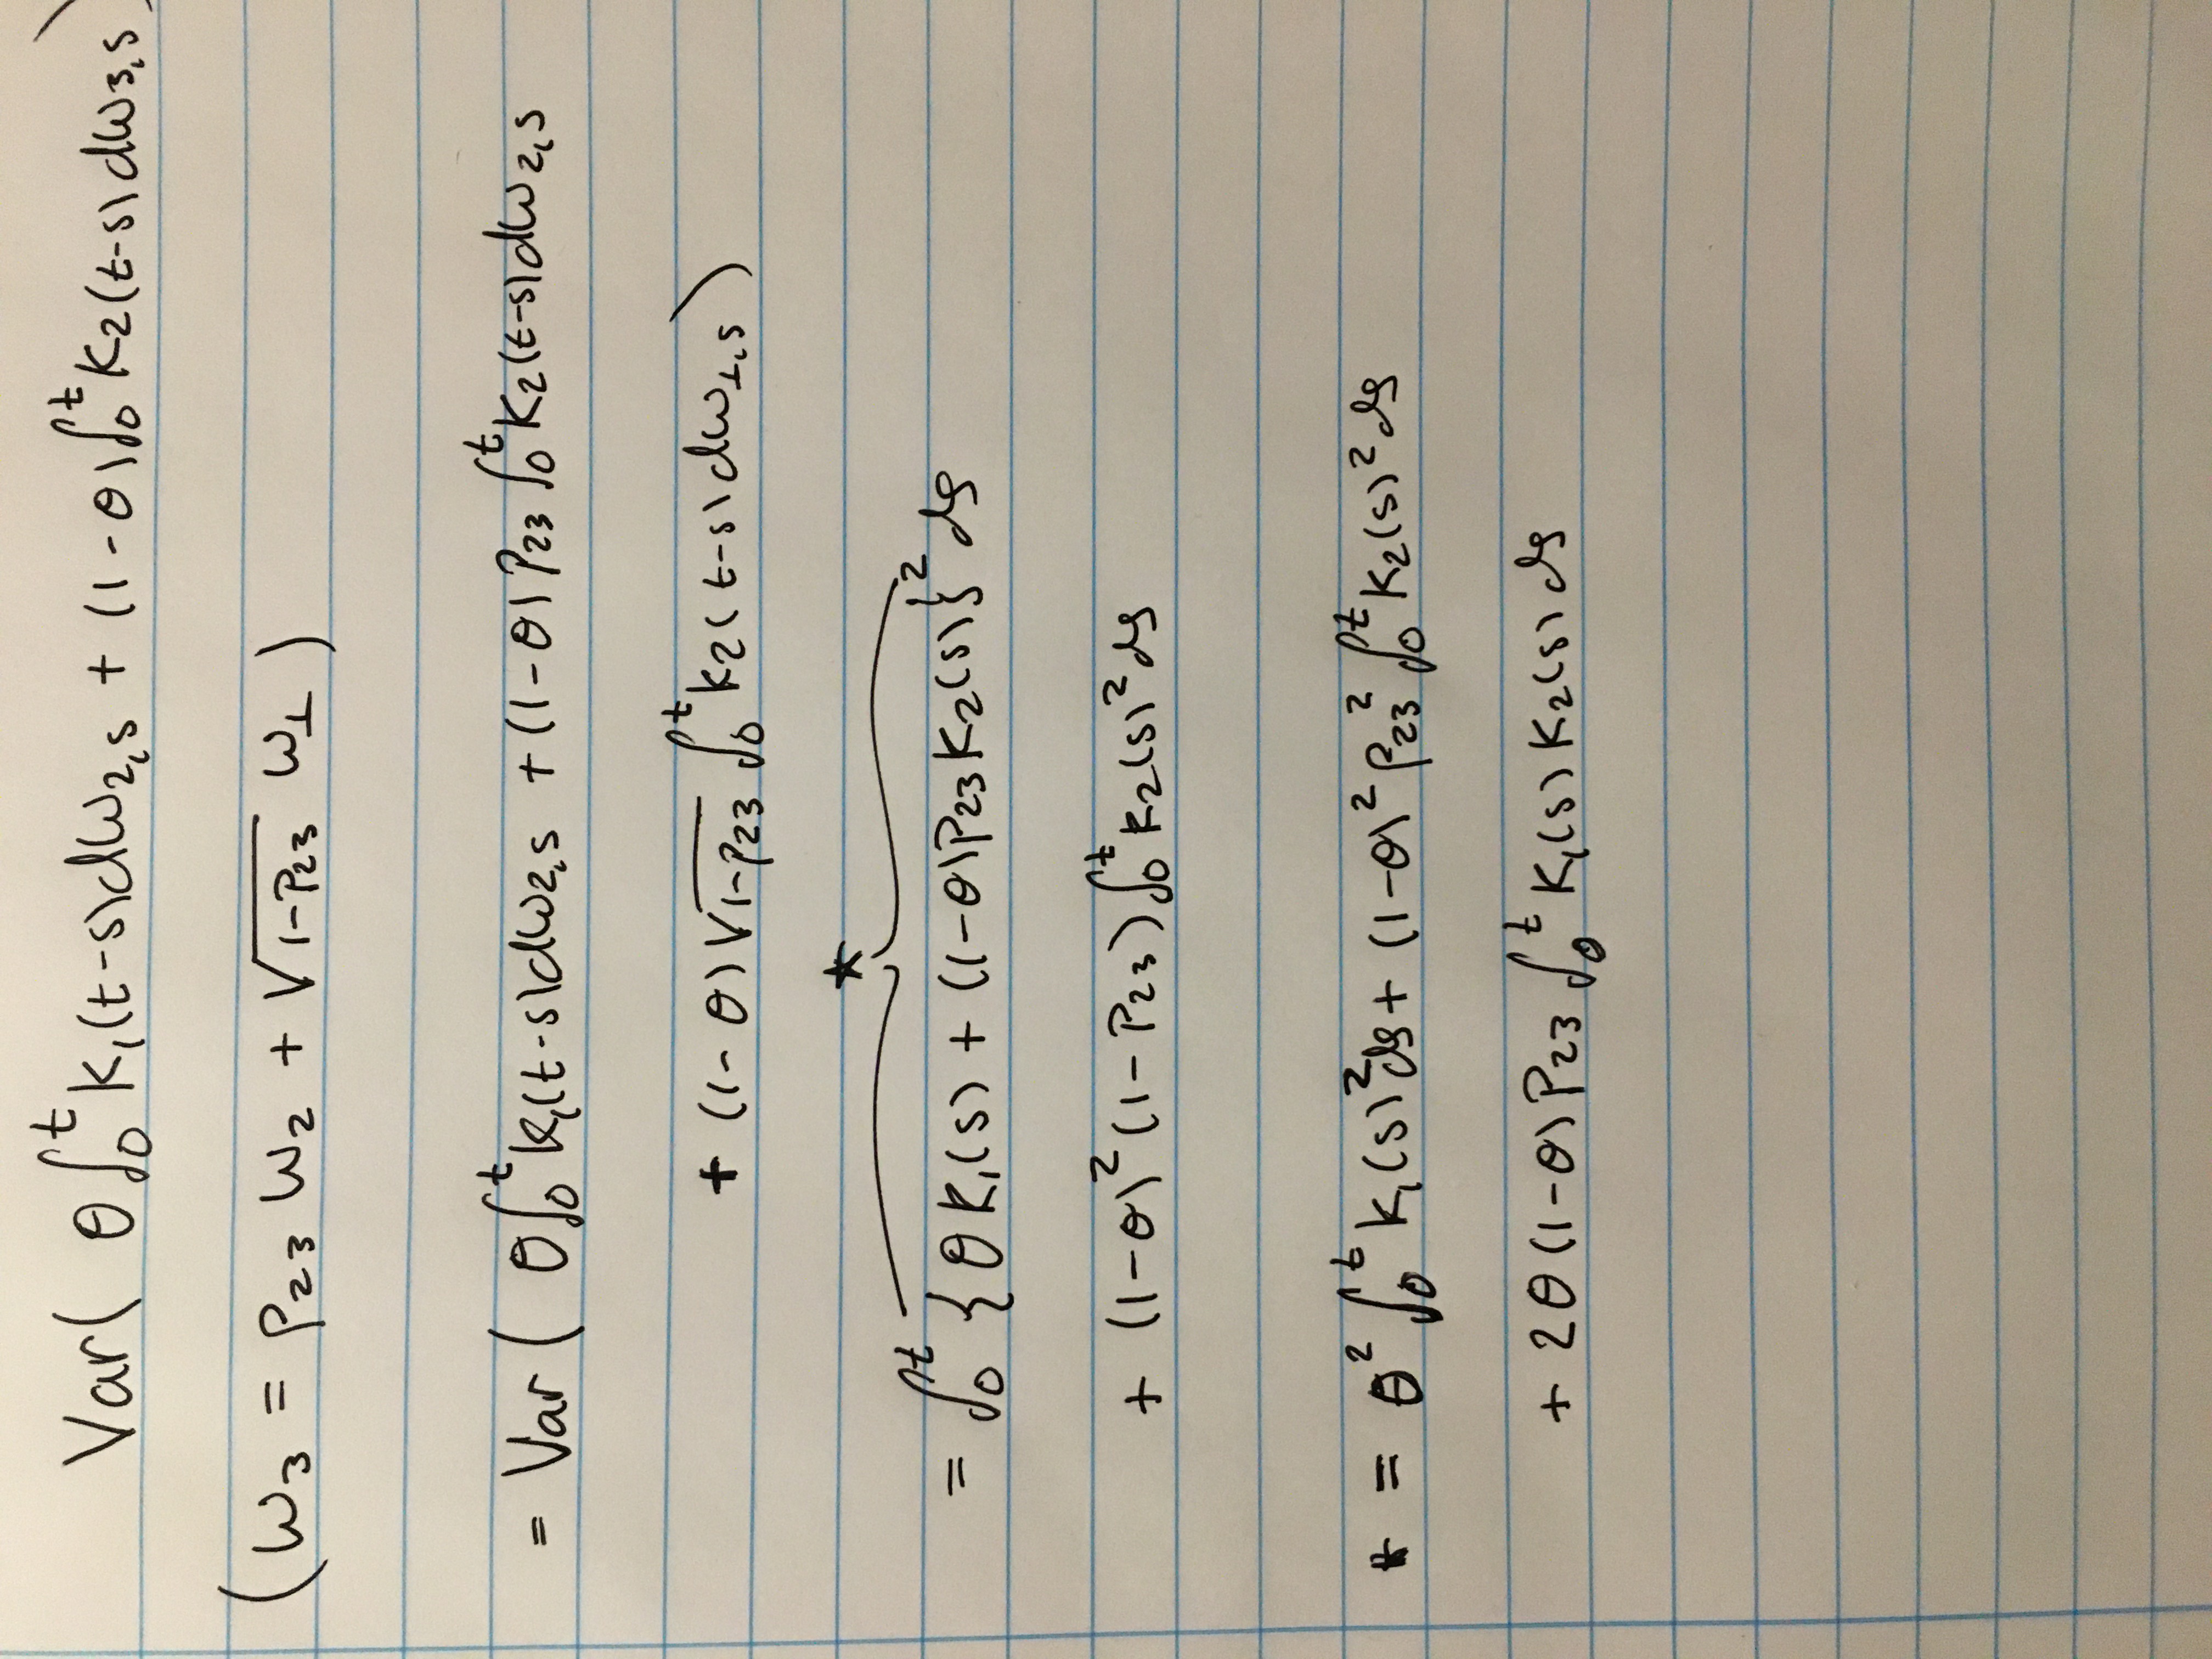 Var( θ∫₀ᵗ K₁(t-s)dW₂,s + (1-θ)∫₀ᵗ K₂(t-s)dW₃,s)
(W₃ = ρ₂₃ W₂ + √(1-ρ₂₃) W⊥)
= Var( θ∫₀ᵗ K₁(t-s)dW₂,s + (1-θ)ρ₂₃∫₀ᵗ K₂(t-s)dW₂,s
+ (1-θ)√(1-ρ₂₃) ∫₀ᵗ K₂(t-s)dW⊥,s)
*
= ∫₀ᵗ {θK₁(s) + (1-θ)ρ₂₃K₂(s)}² ds
+ (1-θ)²(1-ρ₂₃)∫₀ᵗ K₂(s)²ds
* = θ²∫₀ᵗ K₁(s)²ds + (1-θ)²ρ₂₃²∫₀ᵗ K₂(s)²ds
+ 2θ(1-θ)ρ₂₃∫₀ᵗ K₁(s)K₂(s)ds